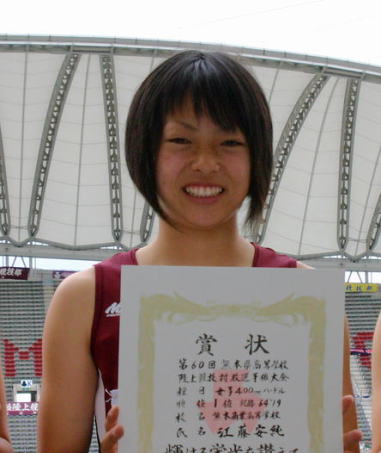 賞状
第60回 熊本県高等学校
陸上競技対校選手権大会
種目 女子400mハードル
等級 1位 記録 64"79
校名 熊本商業高等学校
氏名 江藤安純
輝ける栄光を讃えて